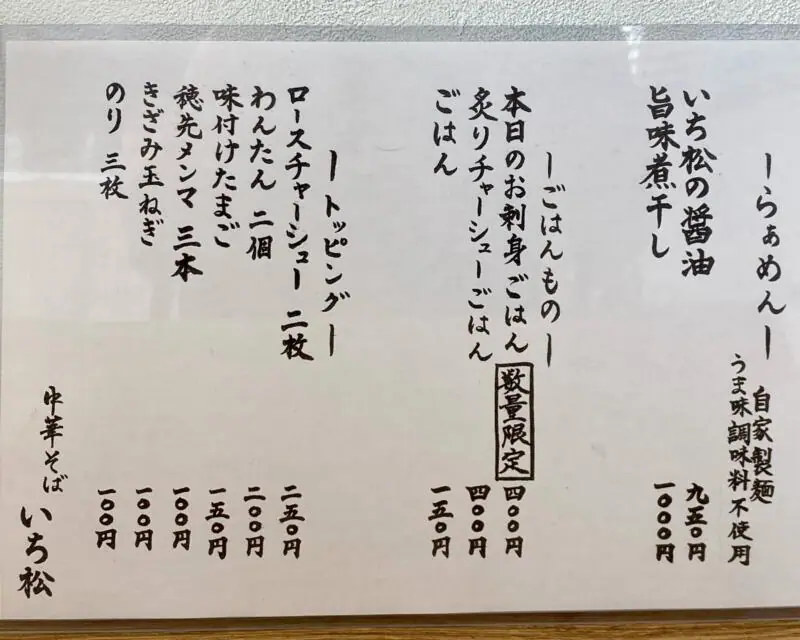 ーらぁめんー
自家製麺
うま味調味料不使用
いち松の醤油 九五〇円
旨味煮干し 一〇〇〇円
ーごはんものー
本日のお刺身ごはん 数量限定 四〇〇円
炙りチャーシューごはん 四〇〇円
ごはん 一五〇円
ートッピングー
ロースチャーシュー 二枚 二五〇円
わんたん 二個 二〇〇円
味付けたまご 一五〇円
穂先メンマ 三本 一〇〇円
きざみ玉ねぎ 一〇〇円
のり 三枚 一〇〇円
中華そば いち松